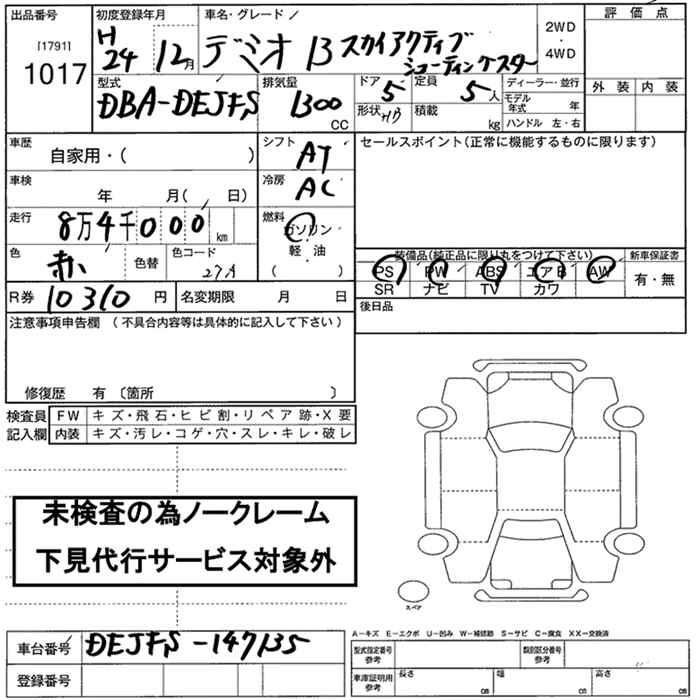 出品番号 初度登録年月 車名・グレード 評価点
[1791] H 24 12月 デミオ 13 スカイアクティブ 2WD・4WD
1017 シューティングスター
型式 排気量 ドア 5 定員 5人 ディーラー・並行 外装 内装
DBA-DEJFS 1300 CC 形状 HB 積載 kg モデル年式 年
ハンドル 左・右
車歴 自家用・( ) シフト AT セールスポイント(正常に機能するものに限ります)
車検 年 月( 日) 冷房 AC
走行 8万4千000km 燃料 ガソリン
色 赤 色替 色コード 27A 軽・油 ( )
装備品(純正品に限り丸をつけて下さい) 新車保証書
PS PW ABS エアB AW 有・無
SR ナビ TV カワ
R券 10310円 名変期限 月 日 後日品
注意事項申告欄 (不具合内容等は具体的に記入して下さい)
修復歴 有 〔箇所 〕
検査員 FW キズ・飛石・ヒビ割・リペア跡・X要
記入欄 内装 キズ・汚レ・コゲ・穴・スレ・キレ・破レ
未検査の為ノークレーム
下見代行サービス対象外
スペア
A-キズ E-エクボ U-凹み W-補修跡 S-サビ C-腐食 XX-交換済
車台番号 DEJFS-147135 型式指定番号 参考 類別区分番号 参考
登録番号 車庫証明用 参考 長さ cm 幅 cm 高さ cm